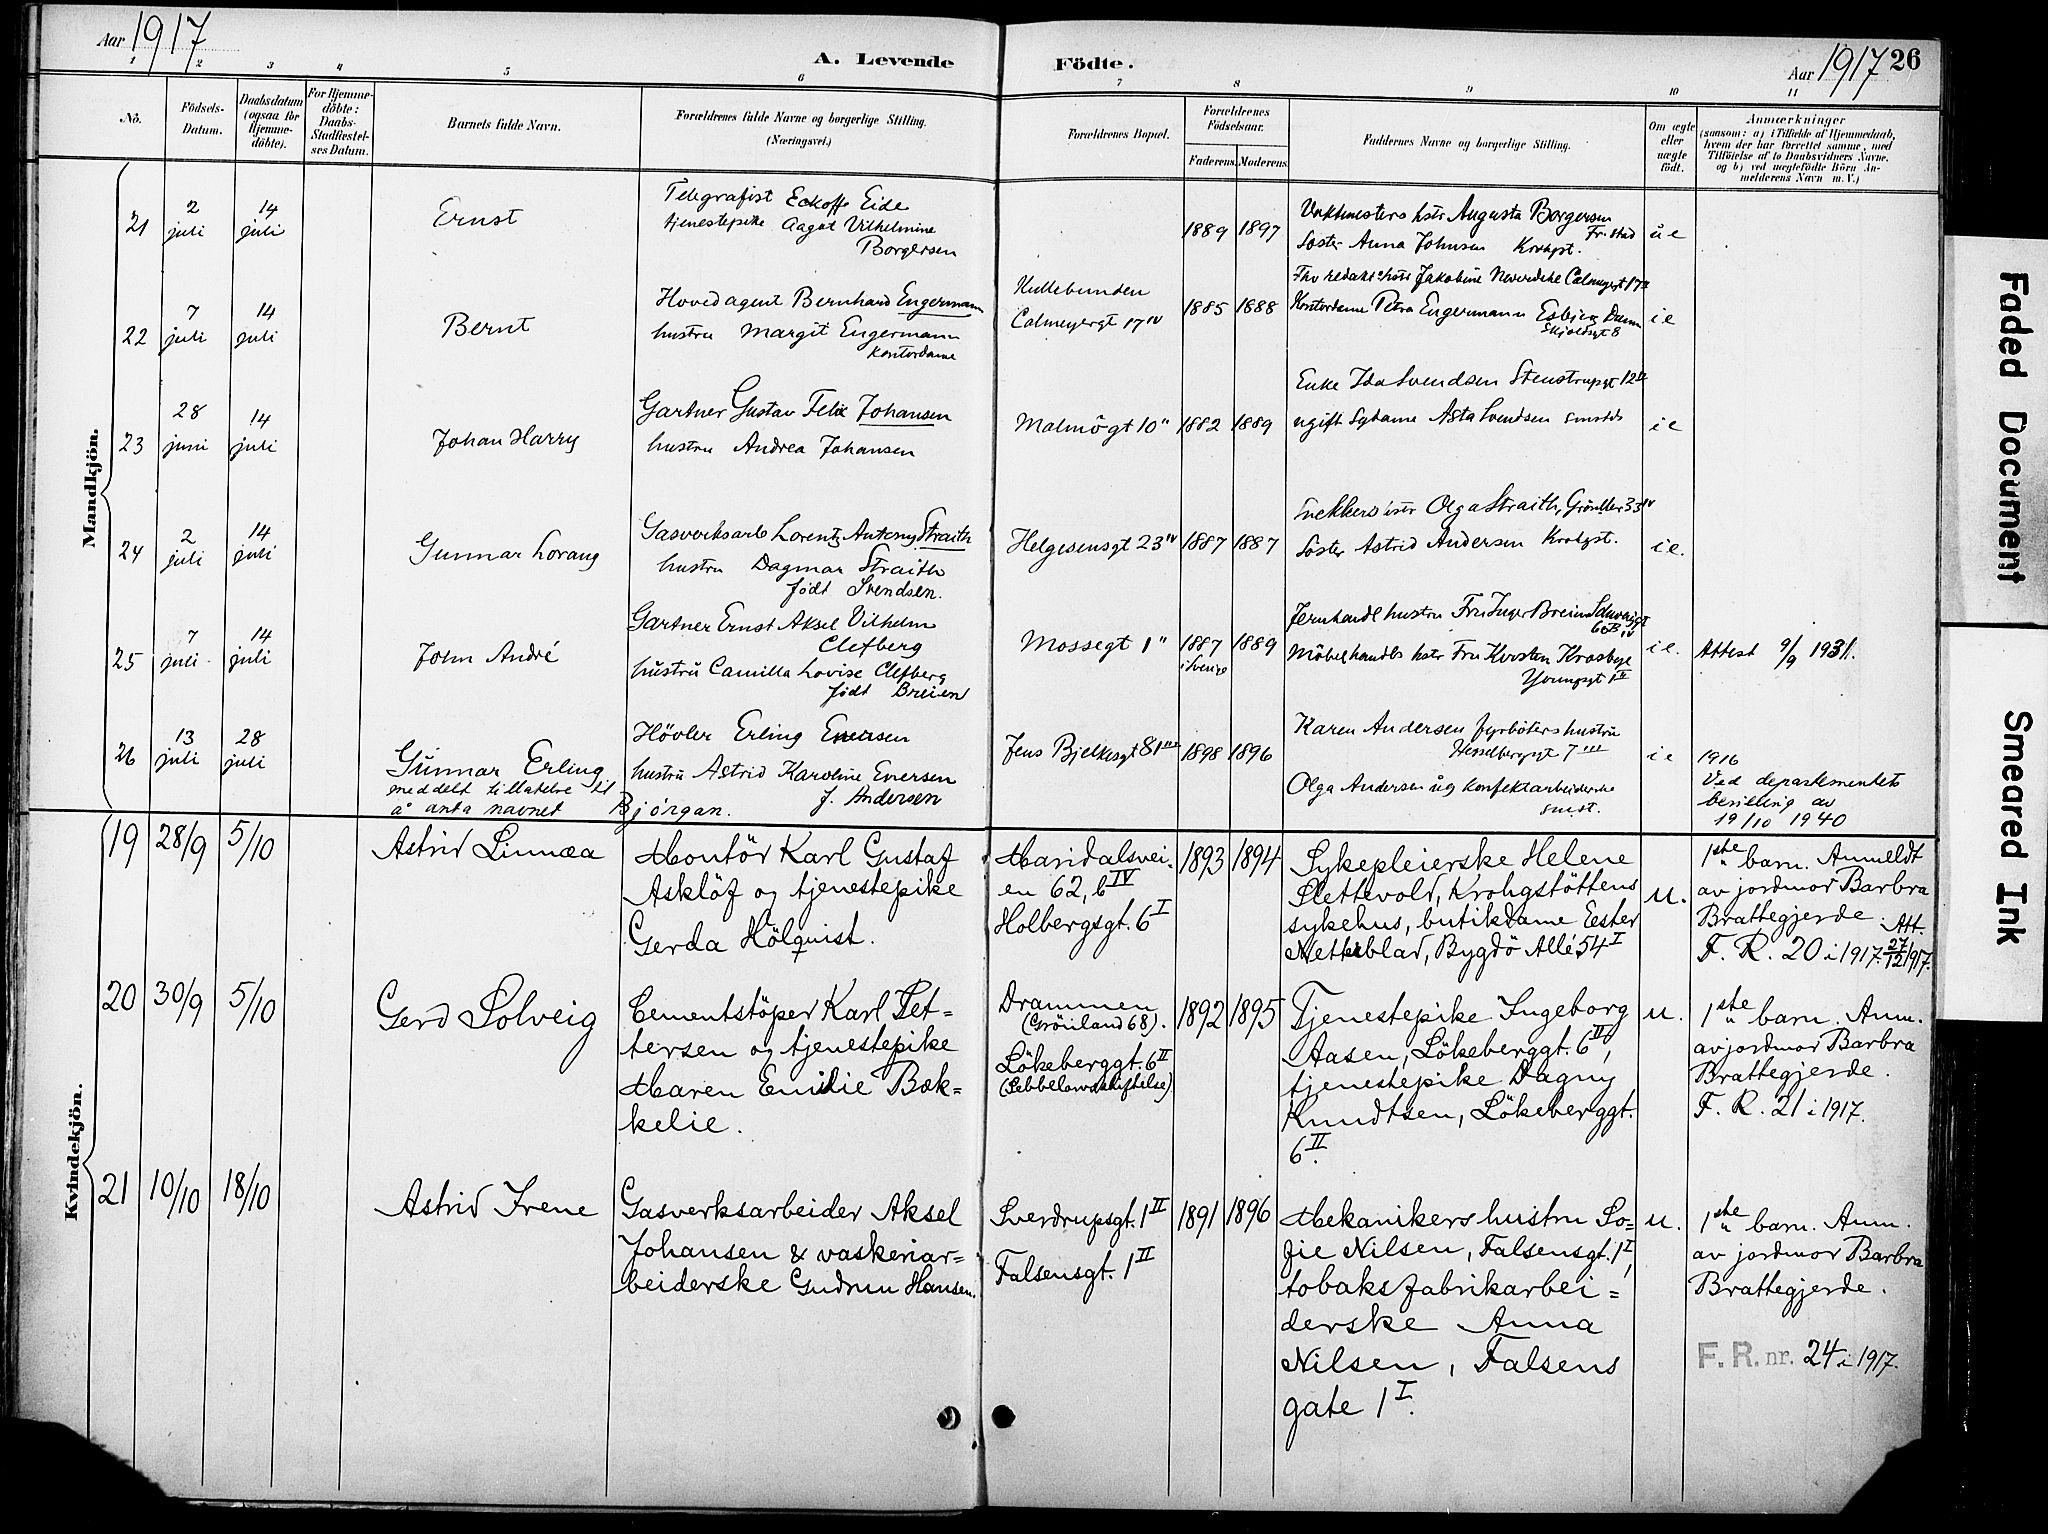 Aar 1917
A. Levende Födte.
Aar 1917 26
1 2 3 4 5 6 7 8 9 10 11
No.
Födsels-Datum.
Daabsdatum (ogsaa for Hjemme-döbte).
For Hjemme-döbte: Daabs-Stadfæstel-ses Datum.
Barnets fulde Navn.
Forældrenes fulde Navne og borgerlige Stilling. (Næringsvei.)
Forældrenes Bopæl.
Forældrenes Födselsaar.
Faderens. Moderens.
Faddernes Navne og borgerlige Stilling.
Om ægte eller uægte födt.
Anmærkninger
(saasom: a) i Tilfælde af Hjemmedaab, hvem der har forrettet samme, med Tilföielse af to Daabsvidners Navne, og b) ved uægtefödte Börn An-melderens Navn m. V.)
Mandkjön.
21
2 juli
14 juli
Ernst
Telegrafist Eckoff Eide
tjenestepike Aagot Vilhelmine
Borgersen
1889 1897
hstr Augusta Borgersen
Fr.stad
Söster Anna Johnsen Krohgst.
u e
22
7 juli
14 juli
Bernt
Hovedagent Bernhard Engermann
hustru Margit Engermann
kontordame
Calmeyergt 17 IV
1885 1888
Jakobine Calmeyergt 17
Kontordame Petra Engermann Esbjerg Danm
Skjoldsgt 8
i e
23
28 juni
14 juli
Johan Harry
Gartner Gustav Felix Johansen
hustru Andrea Johansen
Malmögt 10 II
1882 1889
Enke Ida Svendsen Stenstrupgt 12 II
ugift Sydame Asta Svendsen smstds
i e
24
2 juli
14 juli
Gunnar Lorang
Gasverksarb Lorentz Antony Straith
hustru Dagmar Straith
født Svendsen.
Helgesensgt 23 IV
1887 1887
Snekkers hstr Olga Straith, Grünller 33 IV
Söster Astrid Andersen Krohgst.
i e.
25
7 juli
14 juli
John André
Gartner Ernst Aksel Vilhelm
Clefberg
hustru Camilla Lovise Clefberg
født Breien
Mossegt 1 II
1887 i Sverige 1889
Jernhandl hustru Fru Inger Breien
60B IV
Möbelhandlers hstr Fru Kirsten Krosbye
Youngsgt 1 II
i e.
Attest 9/9 1931.
26
13 juli
28 juli
Gunnar Erling
meddelt tillatelse til
å anta navnet Bjørgan.
Hövler Erling Enersen
hustru Astrid Karoline Enersen
f. Andersen
Jens Bjelkesgt 81 III
1898 1896
Karen Andersen fyrböters hustru
Hesselbergsgt 7 III
Olga Andersen ug konfektarbeiderske
smst.
i e
1916
Ved departementets
bevilling av
19/10 1940
Kvindekjön.
19 28/9 5/10
Astrid Linnæa
Montör Karl Gustaf
Asklöf og tjenestepike
Gerda Hölquist.
Maridalsvei-
en 62, b IV
Holbergsgt. 6 I
1893 1894
Sykepleierske Helene
Slettevold, Krohgstöttens
sykehus, butikdame Ester
Netteblad, Bygdö Allé 54 I
u.
1ste barn. Anmeldt
av jordmor Barbra
Brattegjerde. Att.
F. R. 20 i 1917. 27/12 1917.
20 30/9 5/10
Gerd Solveig
Cementstöper Karl Pet-
tersen og tjenestepike
Maren Emilie Bæk-
kelie.
Drammen
(Grönland 68).
Lökeberggt. 6 II
(Sebbelowsstiftelse)
1892 1895
Tjenestepike Ingeborg
Aasen, Lökeberggt. 6 II,
tjenestepike Dagny
Knudtsen, Lökeberggt.
6 II.
u.
1ste barn. Anm.
av jordmor Barbra
Brattegjerde.
F. R. 21 i 1917.
21 10/10 18/10
Astrid Irene
Gasverksarbeider Aksel
Johansen & vaskeriar=
beiderske Gudrun Hansen.
Sverdrupsgt. 1 II
Falsensgt. 1 II
1891 1896
Mekanikers hustru So=
fie Nilsen, Falsensgt. 1 I,
tobaksfabrikarbei=
derske Anna
Nilsen, Falsens
gate 1 I.
u.
1ste barn. Anm.
av jordmor Barbra
Brattegjerde.
F. R. nr. 24 i 1917.
Faded Document
Smeared Ink